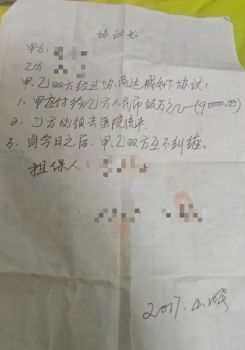 协议书
甲方：
乙方：
甲、乙双方经过协商达成如下协议：
1、甲方付给乙方人民币玖万元 (90000.00)
2、乙方必须去医院流产.
3、自今日之后，甲、乙双方互不纠缠。
担保人：
2017.4.